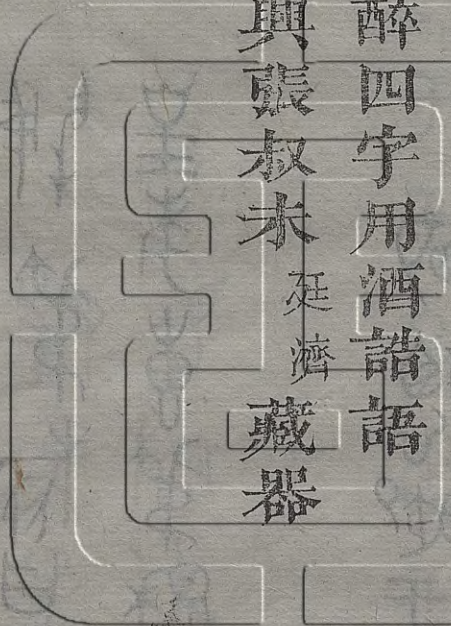 醉四字用酒誥語
興張叔未廷濟藏器